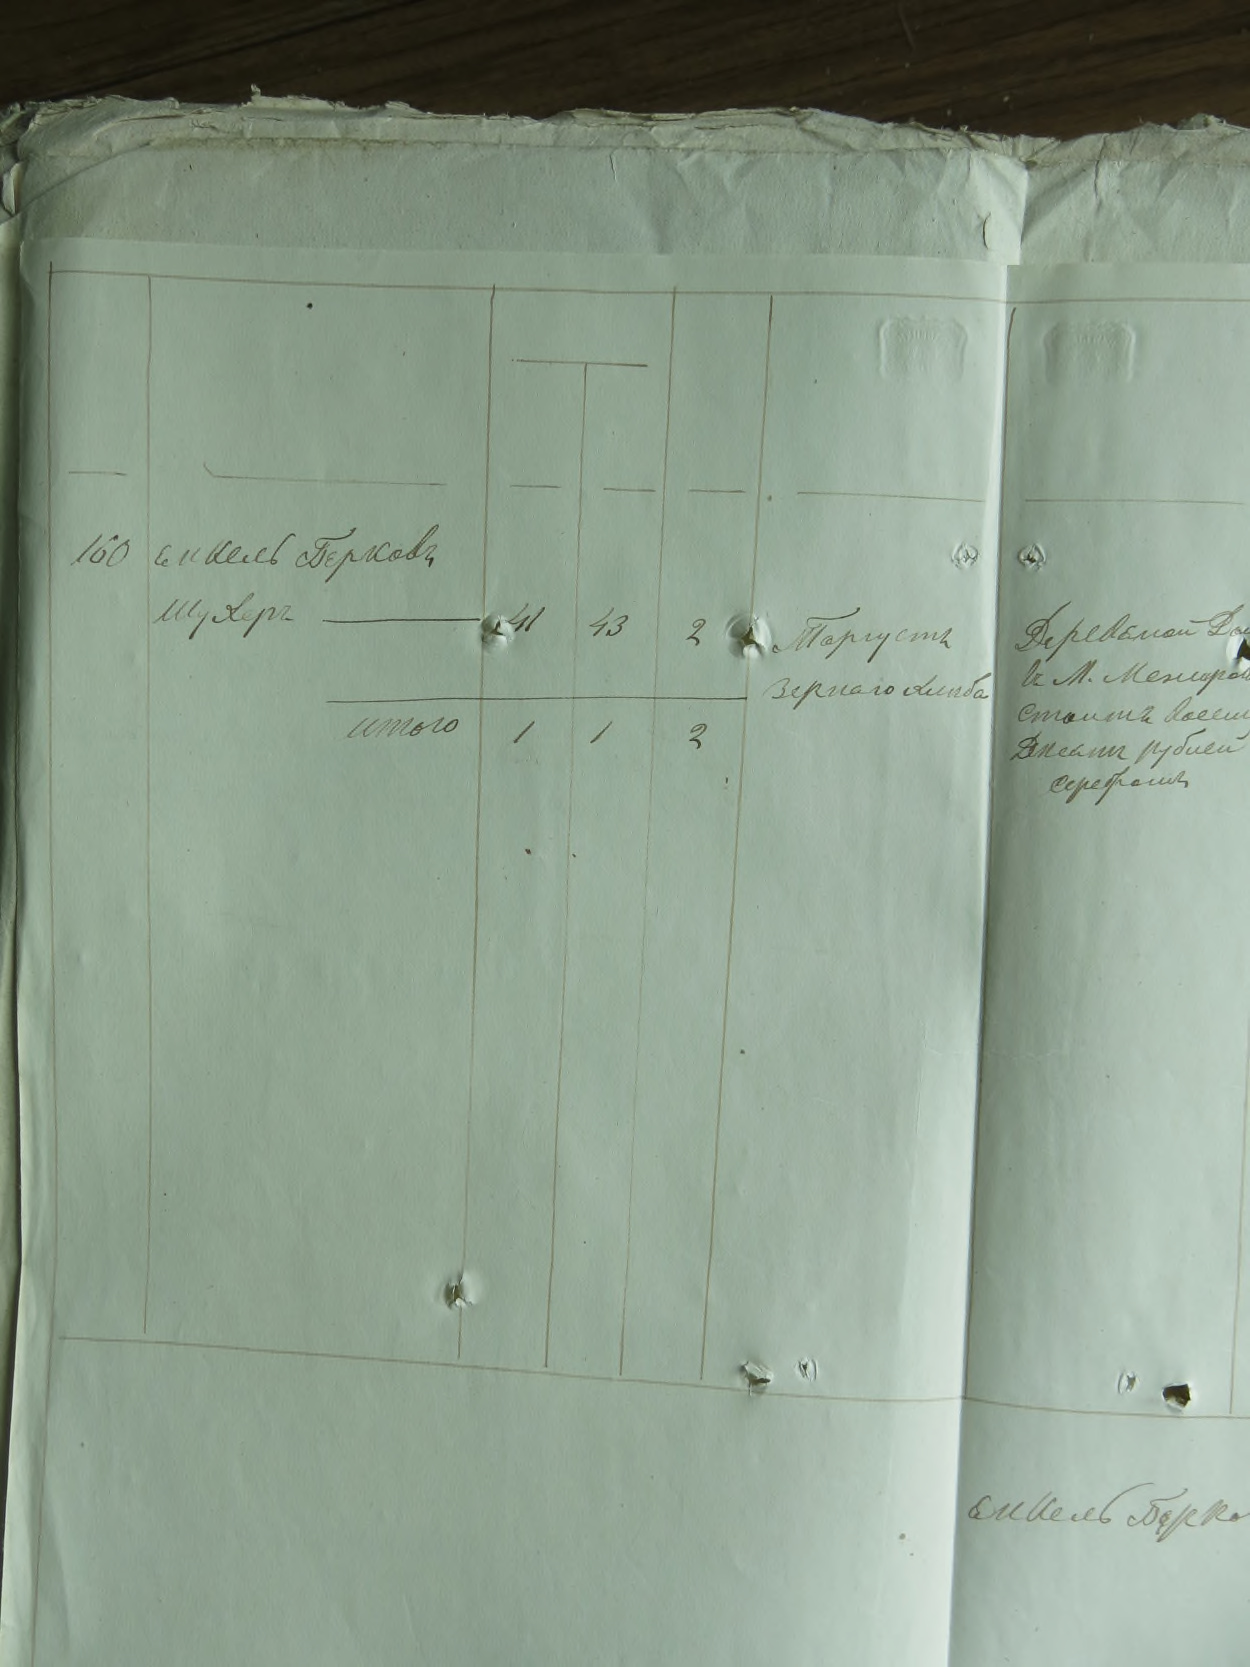 160 Енкель Берковъ
Шухеръ 41 43 2 Торгуетъ
зернаго хлѣба
итого 1 1 2
Деревяной До
въ М. Межиров
стоитъ восем
Десятъ рублей
серебромъ
Енкель Берко